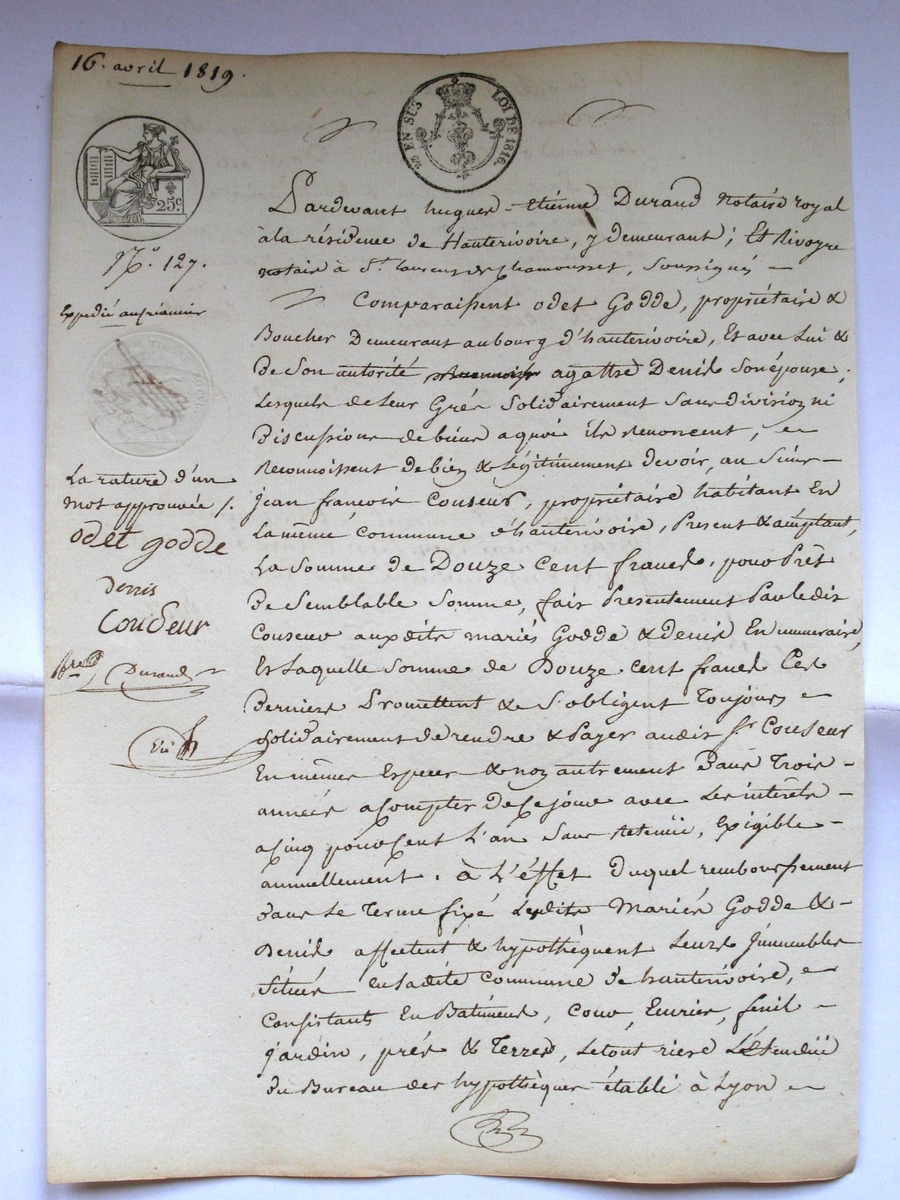 16. avril 1819.
EN SUS LOI DE 1816.
25c.
N.o 127.
Expedié au créancier
La rature d'un
mot approuvée /.
odet godde
denis
Couseur
Durand
Pardevant hugues-Etiénne Durand Notaire royal
à la résidence de Hauterivoire, y demeurant; Et Rivoyre
notaire à St. laurent de Chamousset, Soussignés —
Comparaissent odet Godde, propriétaire &
Boucher Demeurant au bourg d'hauterivoire, Et avec Lui &
de Son autorité agathe Denis Son épouse,
Lesquels de Leur Gré, Solidairement Sans division ni
Discussion de biens a quoi ils Renoncent, —
Reconnoissent de bien & légitimement devoir, au Sieur —
jean francois Couseur, propriétaire habitant En
La même Commune d'hauterivoire, Présent & acceptant,
La Somme de Douze Cent francs, pour Prêt
de Semblable Somme, fait Présentement Par ledit
Couseur auxdits mariés Godde & Denis En numeraire,
Et Laquelle Somme de Douze cent francs Ces
Derniers Promettent & S'obligent Toujours —
Solidairement de rendre & Payer audit Sr. Couseur
En mêmes Especes & non autrement Dans Trois —
années a Compter de Ce jour avec Les interêts —
a Cinq pour Cent L'an Sans Retenüe, Exigible —
annuellement. à L'éffet Duquel remboursement
dans Le Terme fixé Lesdits Mariés Godde & —
Denis affectent & hypothèquent Leurs Immeubles
Situés en Ladite Commune de hauterivoire, —
Consistants En Batiments, Cour, Ecurier, fenil —
jardin, prés & Terres, Le tout riere L'Etendüe
du Bureau des hypothèques établi à Lyon —